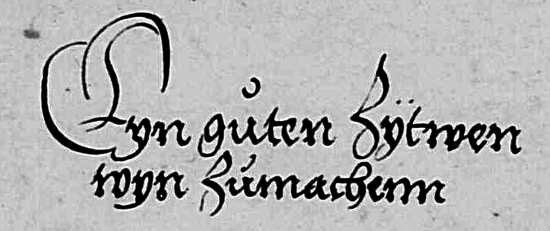 Eyn gůten Zÿtwen
wyn zůmachenn